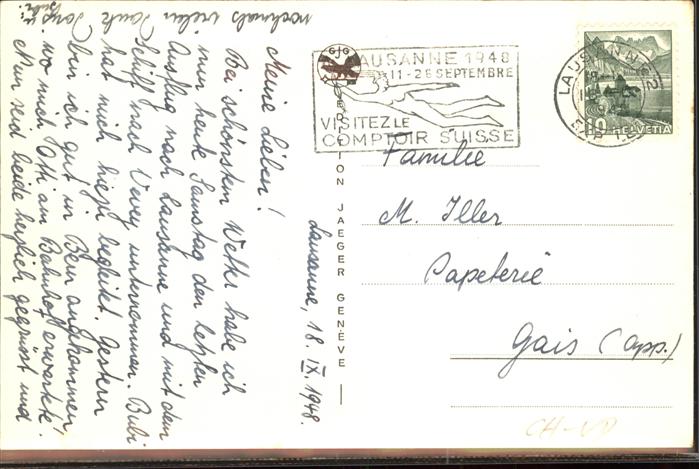 Lausanne, 18. IX. 1948.
Meine Lieben!
Bei schönstem Wetter habe ich
nun heute Samstag den letzten
Ausflug nach Lausanne und mit dem
Schiff nach Vevey unternommen. Bubi
hat mich hiezu begleitet. Gestern
Abend bin ich gut in Bern angekommen,
wo mich Otti am Bahnhof erwartete.
Nun seid beide herzlich gegrüsst und
nochmals vielen Dank
Bubi
EDITION JAEGER GENÈVE
GJG
LAUSANNE 1948
11-26 SEPTEMBRE
VISITEZ LE
COMPTOIR SUISSE
LAUSANNE 2
10 HELVETIA
Familie
M. Iller
Papeterie
Gais (App.)
CH-VD